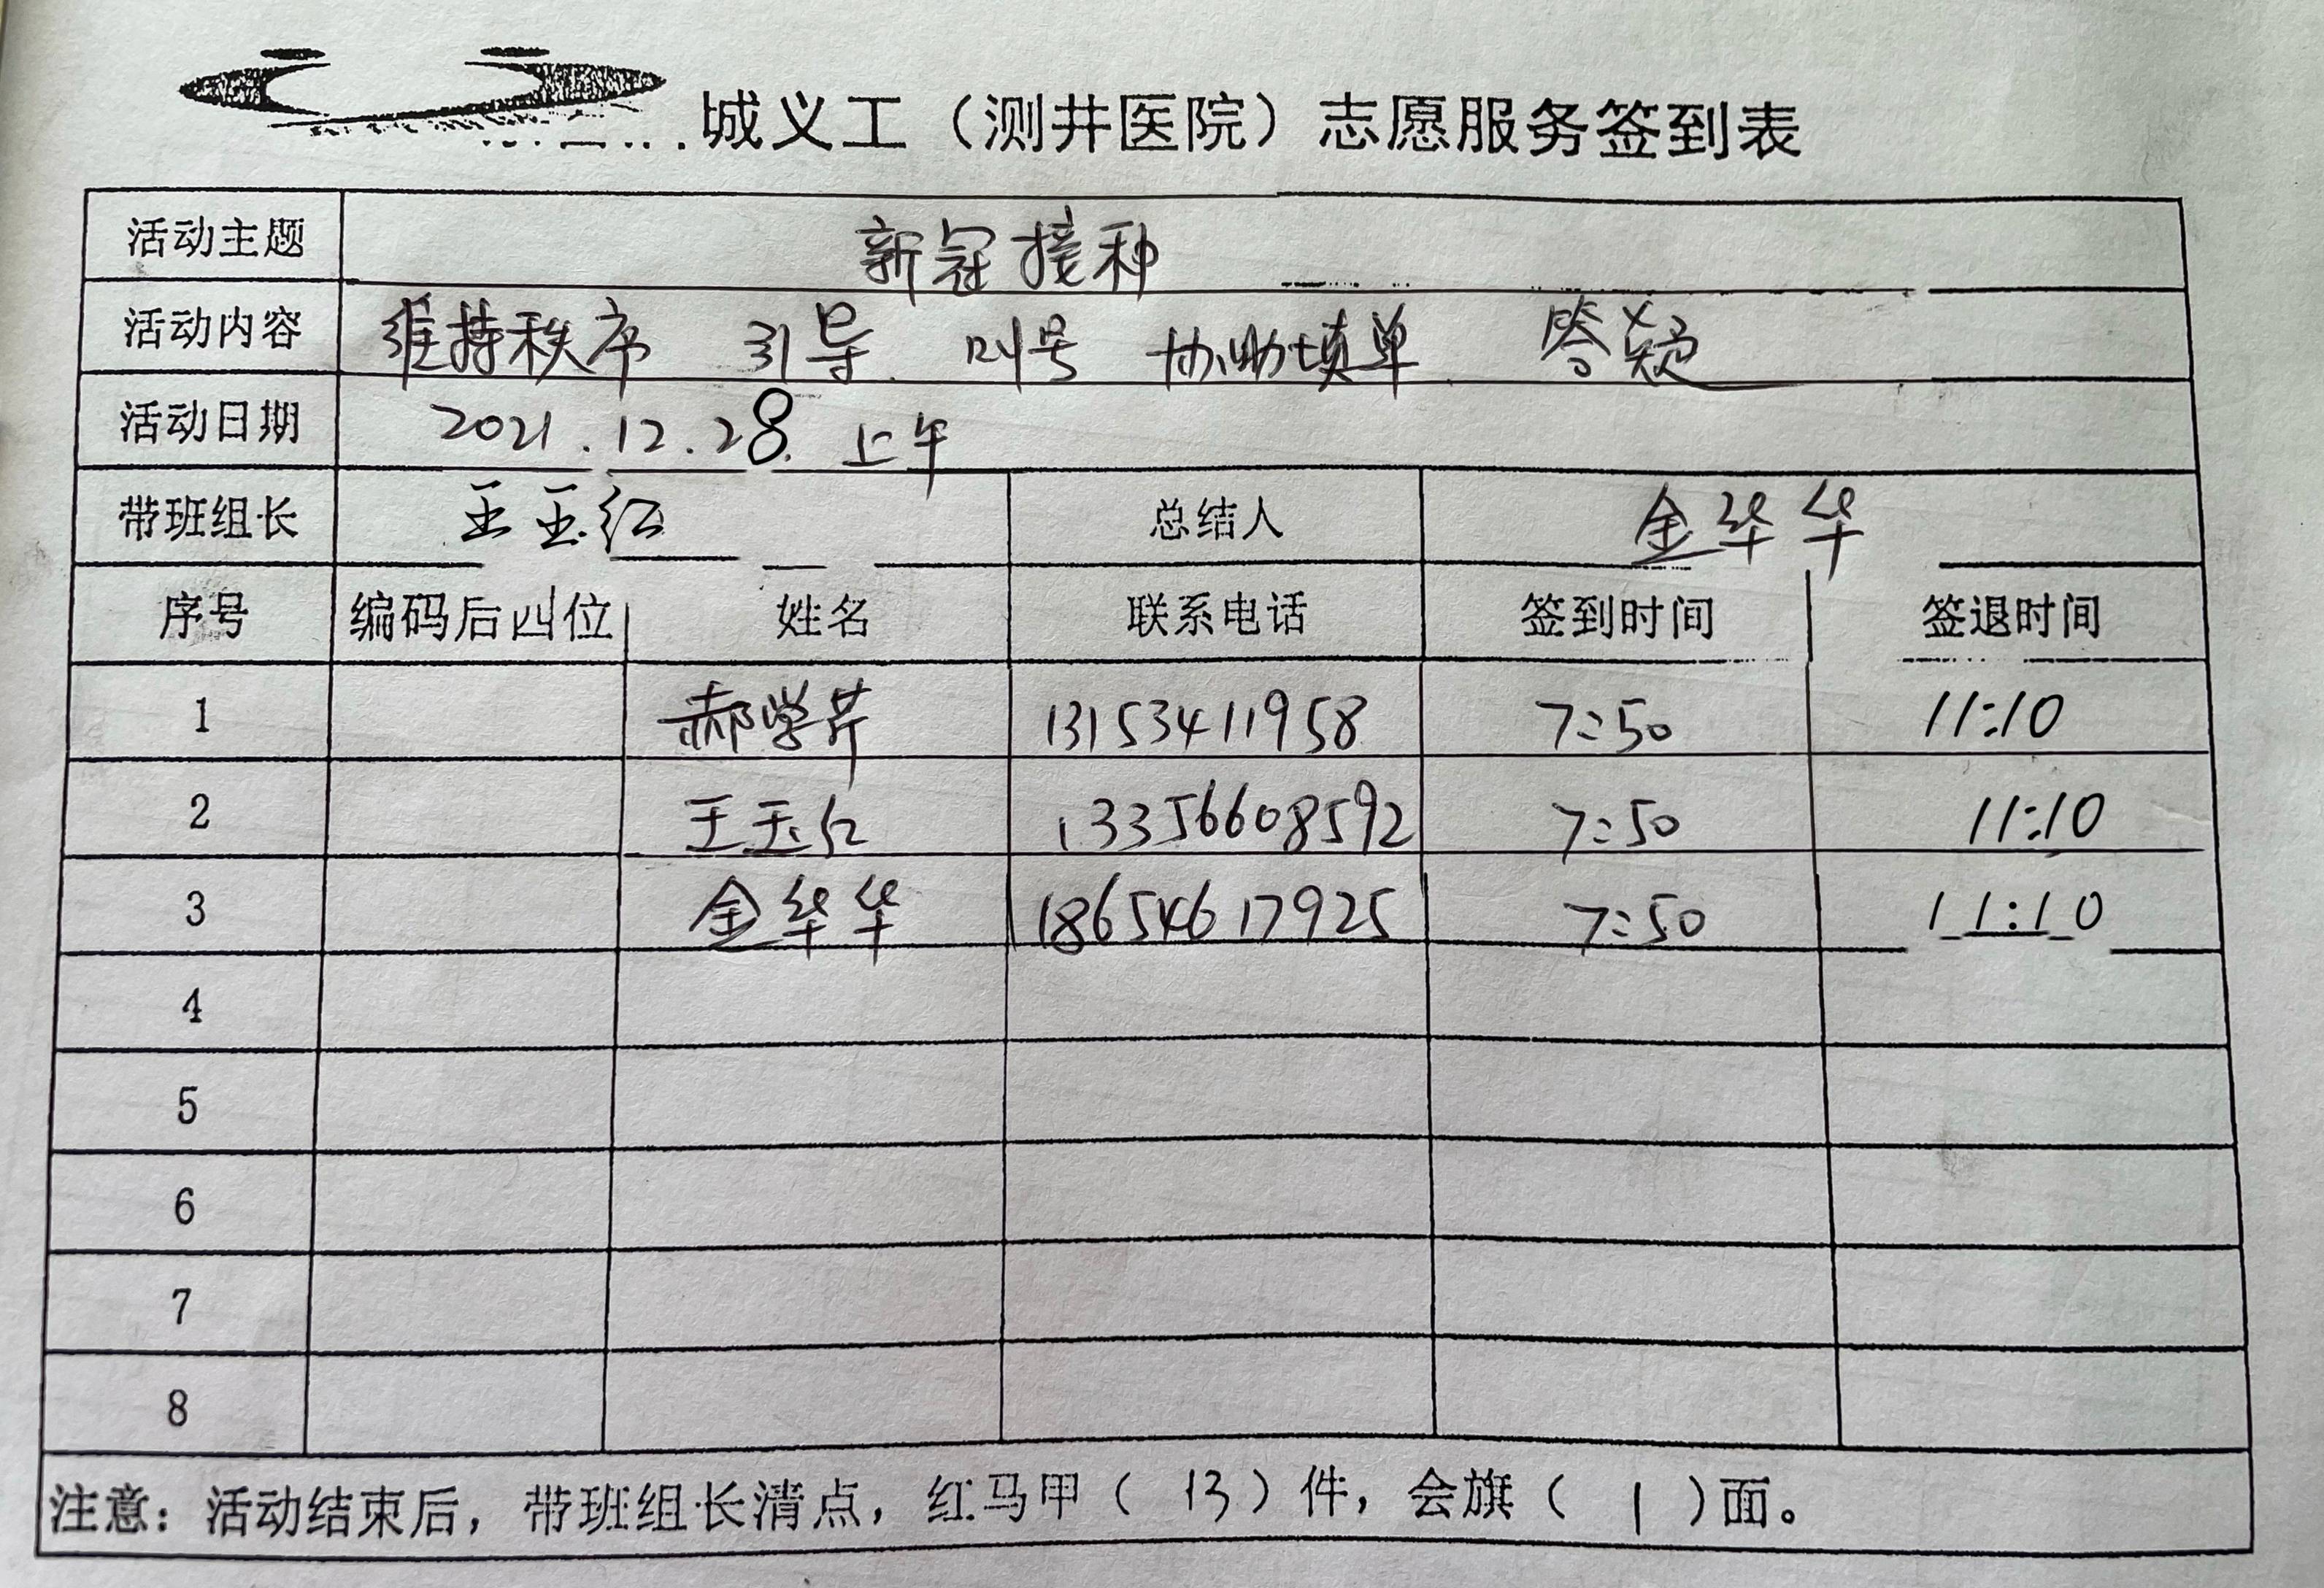 城义工（测井医院）志愿服务签到表
活动主题 新冠接种
活动内容 维持秩序 引导 叫号 协助填单 答疑
活动日期 2021.12.28 上午
带班组长 王玉红 总结人 金华华
序号 编码后四位 姓名 联系电话 签到时间 签退时间
1 郝学芹 13153411958 7:50 11:10
2 王玉红 13356608592 7:50 11:10
3 金华华 18654617925 7:50 11:10
4
5
6
7
8
注意：活动结束后，带班组长清点，红马甲（ 13 ）件，会旗（ 1 ）面。